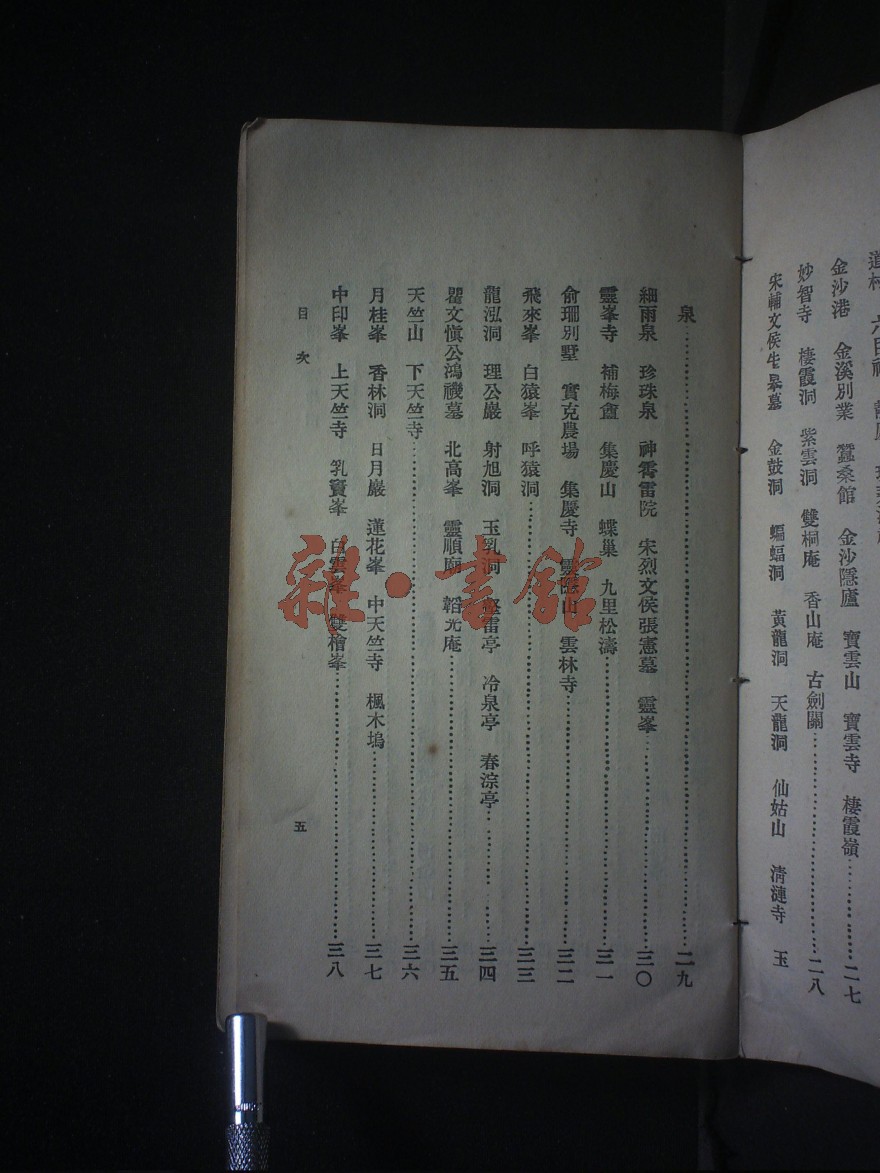 金沙港 金溪別業 蠶桑館 金沙隱廬 寶雲山 寶雲寺 棲霞嶺……二七
妙智寺 棲霞洞 紫雲洞 雙桐庵 香山庵 古劍關……二八
宋輔文侯牛皋墓 金鼓洞 蝙蝠洞 黃龍洞 天龍洞 仙姑山 清漣寺 玉
泉……二九
細雨泉 珍珠泉 神霄雷院 宋烈文侯張憲墓 靈峯……三〇
靈峯寺 補梅盦 集慶山 蝶巢 九里松濤……三一
俞珊別墅 實克農場 集慶寺 靈隱山 雲林寺……三二
飛來峯 白猿峯 呼猿洞……三三
龍泓洞 理公巖 射旭洞 玉乳洞 壑雷亭 冷泉亭 春淙亭……三四
瞿文愼公鴻禨墓 北高峯 靈順廟 韜光庵……三五
天竺山 下天竺寺……三六
月桂峯 香林洞 日月巖 蓮花峯 中天竺寺 楓木塢……三七
中印峯 上天竺寺 乳竇峯 白雲峯 雙檜峯……三八
目次
五
雜·書館